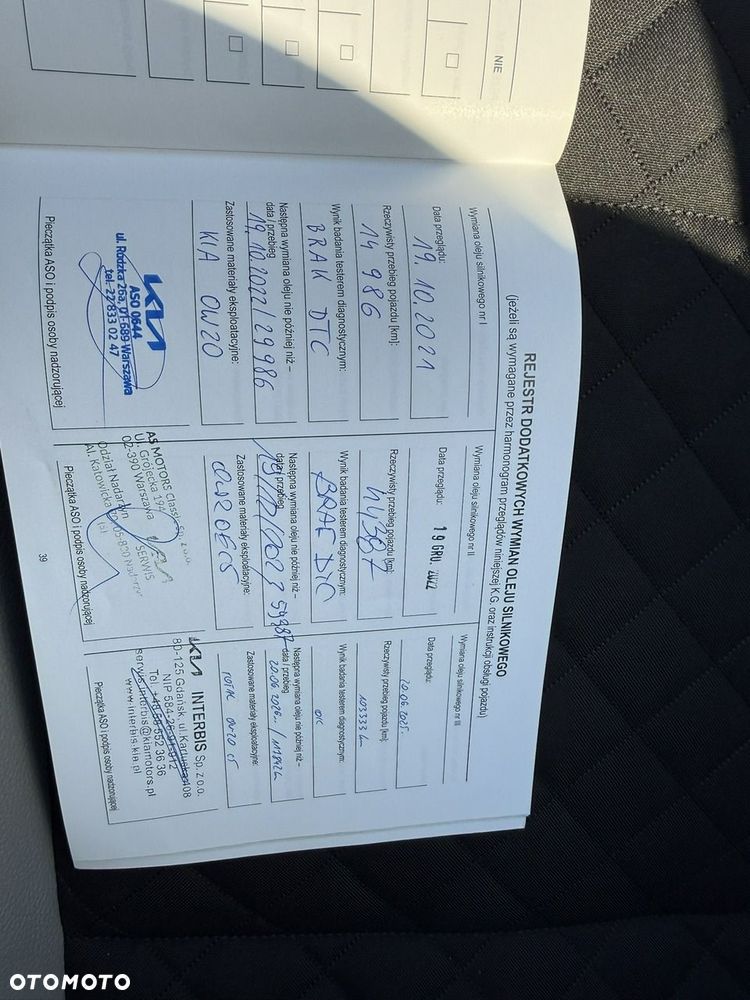 NIE
REJESTR DODATKOWYCH WYMIAN OLEJU SILNIKOWEGO
(jeżeli są wymagane przez harmonogram przeglądów niniejszej K.G. oraz instrukcji obsługi pojazdu)
Wymiana oleju silnikowego nr I
Data przeglądu:
19.10.2021
Rzeczywisty przebieg pojazdu [km]:
14 986
Wynik badania testerem diagnostycznym:
BRAK DTC
Następna wymiana oleju nie później niż –
data / przebieg
19.10.2022/29986
Zastosowane materiały eksploatacyjne:
KIA 0W20
KIA
ASO 0644
ul. Rodzka 26a, 01-689 Warszawa
tel. 22 833 02 47
Pieczątka ASO i podpis osoby nadzorującej
Wymiana oleju silnikowego nr II
Data przeglądu:
19 GRU. 2022
Rzeczywisty przebieg pojazdu [km]:
44387
Wynik badania testerem diagnostycznym:
Następna wymiana oleju nie później niż –
data / przebieg
59387
Zastosowane materiały eksploatacyjne:
AS MOTORS Classic Sp. z o.o.
Ul. Grójecka 194
02-390 Warszawa
SERWIS
KIA
Oddział Nadarzyn
Al. Katowicka
Pieczątka ASO i podpis osoby nadzorującej
Wymiana oleju silnikowego nr III
Data przeglądu:
20.06.2025r.
Rzeczywisty przebieg pojazdu [km]:
103333 km
Wynik badania testerem diagnostycznym:
OK
Następna wymiana oleju nie później niż –
data / przebieg
Zastosowane materiały eksploatacyjne:
TOTAL 0W20
KIA INTERBIS Sp. z o.o.
80-125 Gdańsk, ul. Kartuska 408
NIP 584-
Tel. +48 58 552 36 36
serwis.interbis@kiamotors.pl
www.interbis.kia.pl
Pieczątka ASO i podpis osoby nadzorującej
39
OTOMOTO